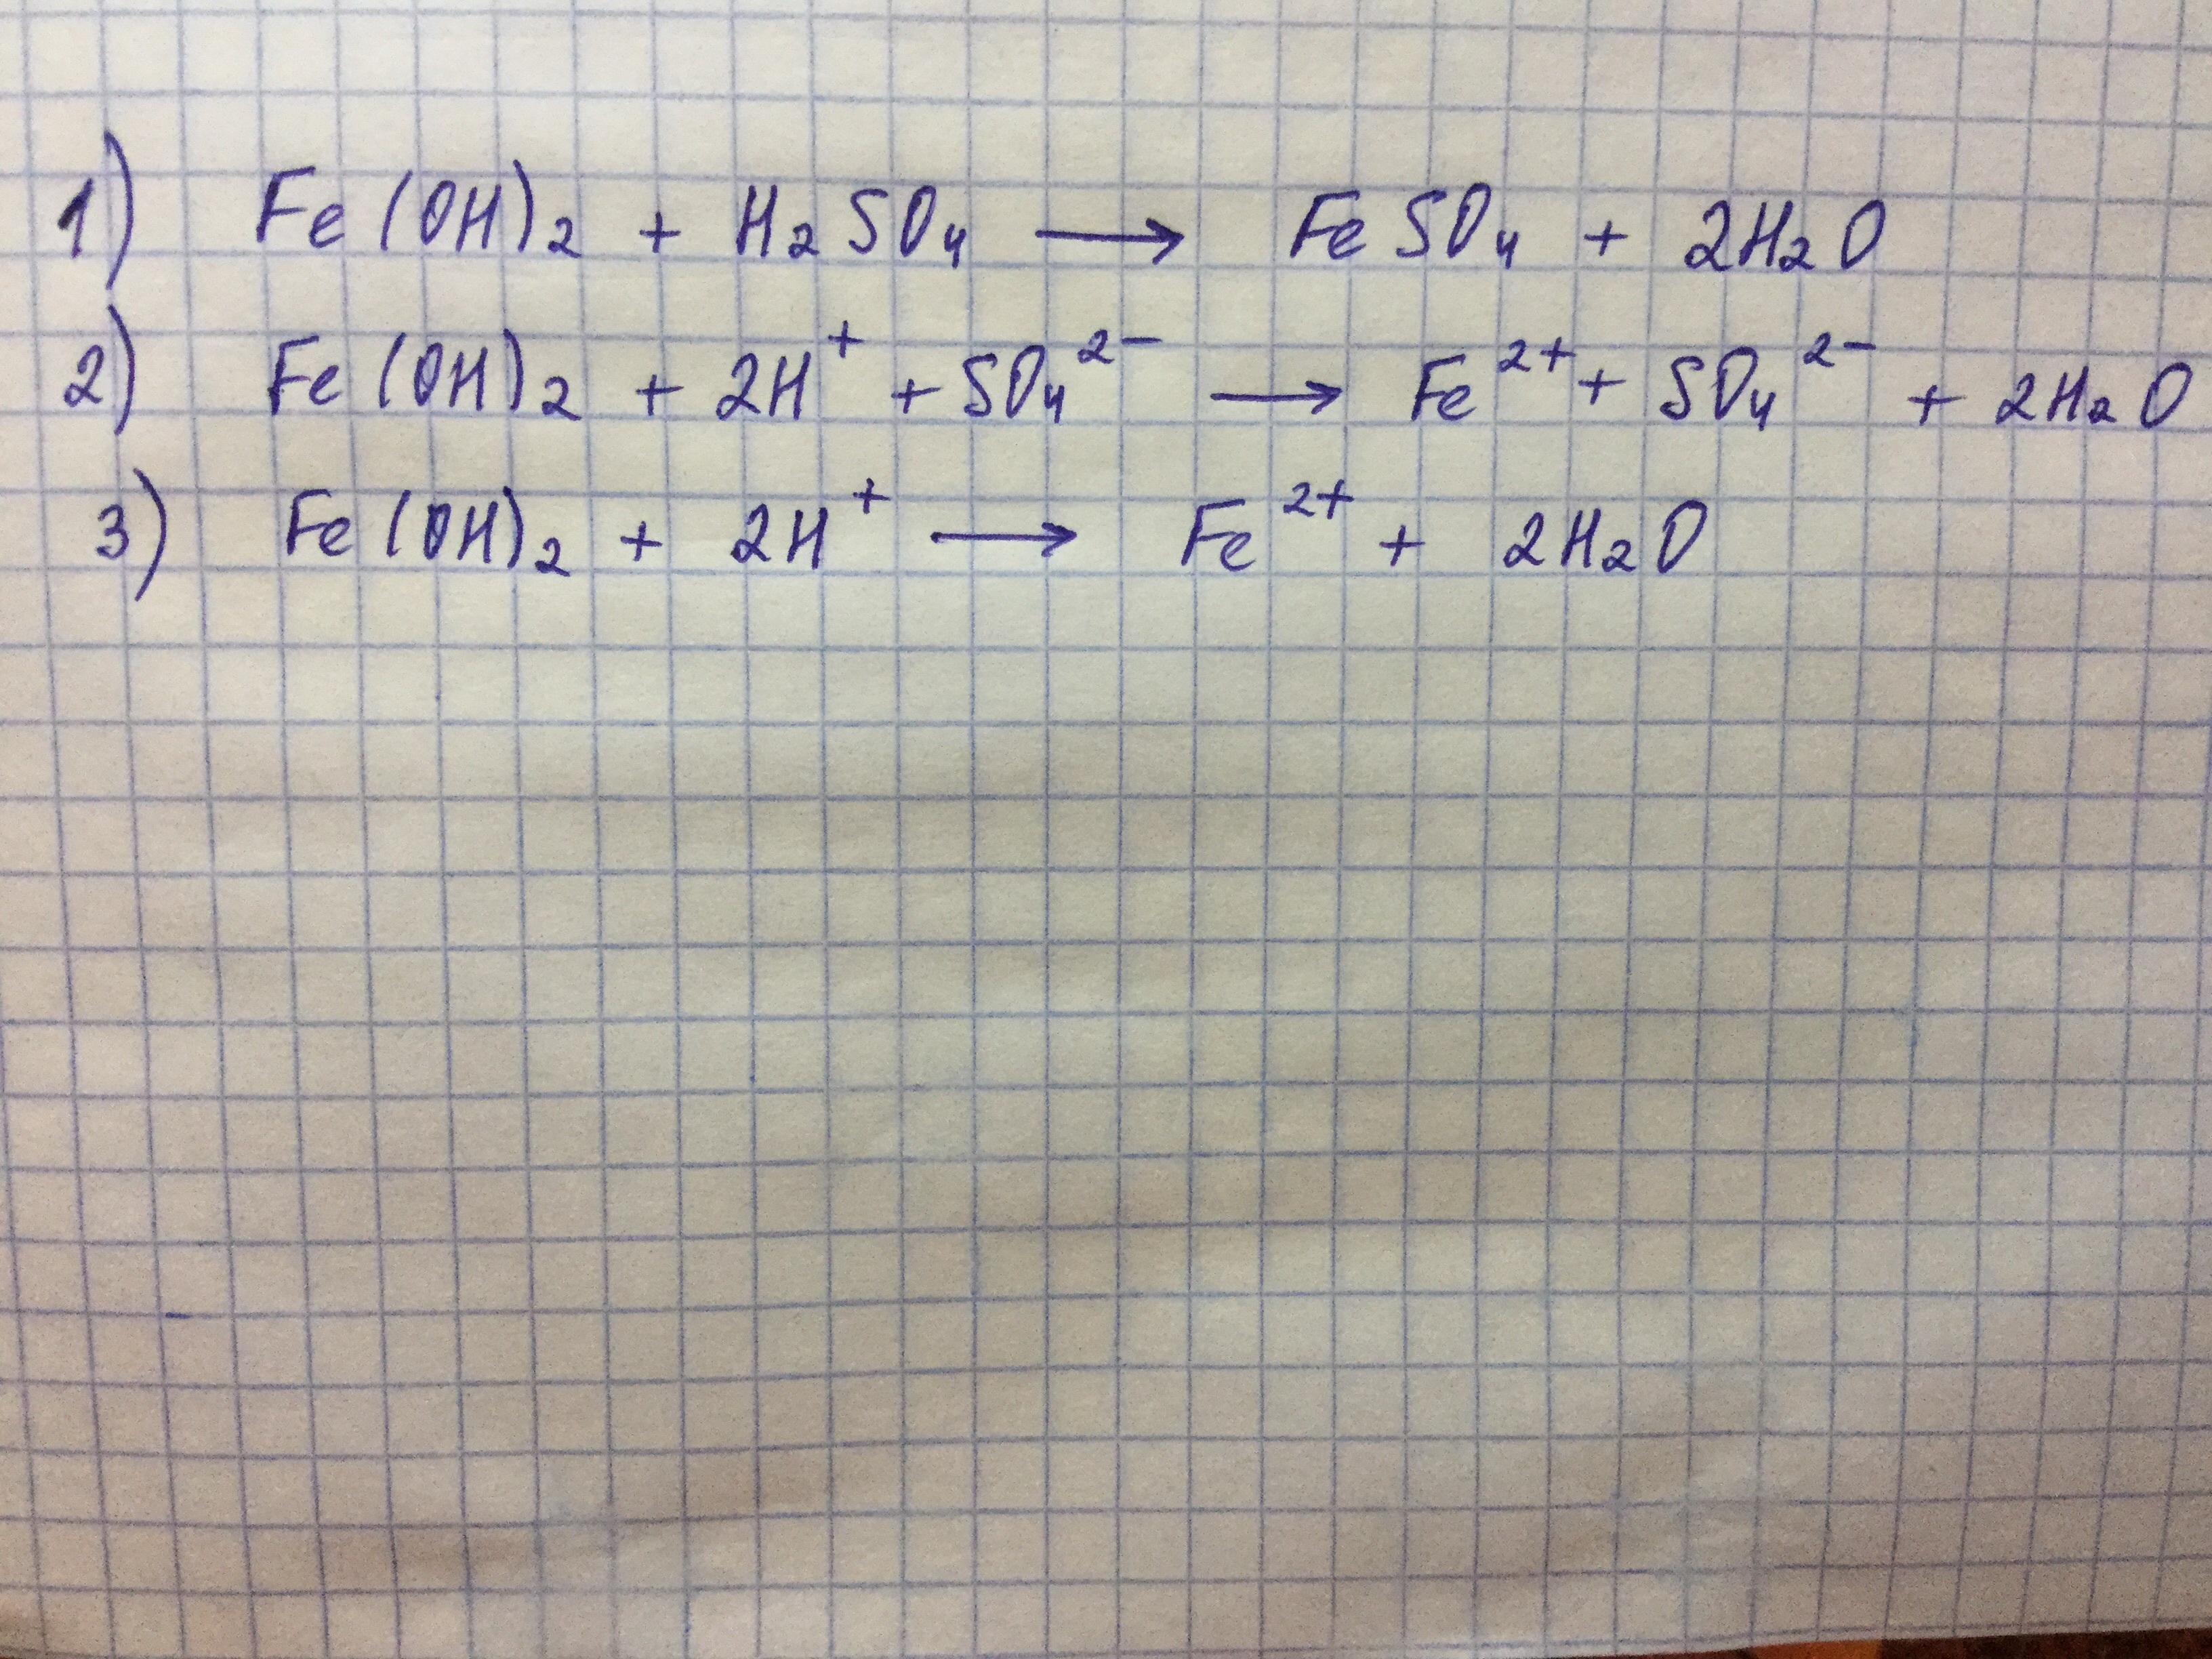 1) Fe(OH)₂ + H₂SO₄ → FeSO₄ + 2H₂O
2) Fe(OH)₂ + 2H⁺ + SO₄²⁻ → Fe²⁺ + SO₄²⁻ + 2H₂O
3) Fe(OH)₂ + 2H⁺ → Fe²⁺ + 2H₂O